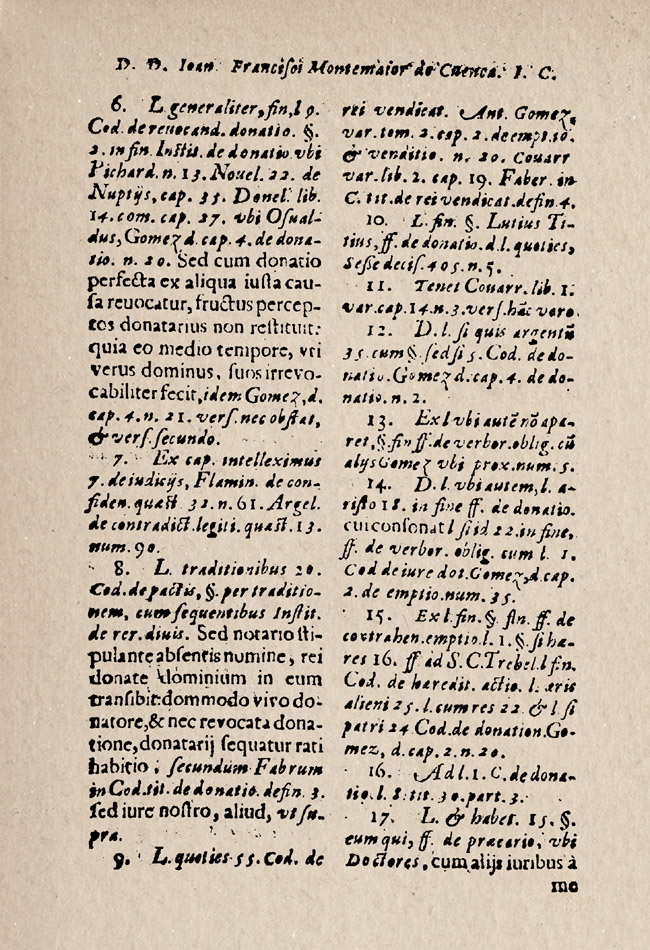 D. D. Ioan Francisci Montemaior de Cuenca. I. C.
6. L. generaliter, fin, l 9.
Cod. de reuocand. donatio. §.
2. in fin. Instit. de donatio vbi
Pichard. n. 13. Nouel. 22. de
Nuptijs, cap. 35. Donel. lib.
14. com. cap. 27. vbi Osual-
dus, Gomez d. cap. 4. de dona-
tio. n. 20. Sed cum donatio
perfecta ex aliqua iusta cau-
sa reuocatur, fructus percep-
tos donatarius non restituit:
quia eo medio tempore, vti
verus dominus, suos irrevo-
cabiliter fecit, idem Gomez, d.
cap. 4. n. 21. vers. nec obstat,
& vers. secundo.
7. Ex cap. intelleximus
7. de iudicijs, Flamin. de con-
fiden. quæst 32. n. 61. Argel.
de contradict. legiti. quæst. 13.
num. 90.
8. L. traditionibus 20.
Cod. de pactis, §. per traditio-
nem, cum sequentibus Instit.
de rer. diuis. Sed notario sti-
pulante absentis numine, rei
donate dominium in eum
transibit: dommodo vivo do-
natore, & nec revocata dona-
tione, donatarij sequatur rati
habitio; secundum Fabrum
in Cod. tit. de donatio. defin. 3.
sed iure nostro, aliud, vt su-
pra.
9. L. quoties 55. Cod. de
rei vendicat. Ant. Gomez,
var. tom. 2. cap. 2. de empt. io.
& venditio. n. 20. Couarr
var. lib. 2. cap. 19. Faber. in
C. tit. de rei vendicat. defin. 4.
10. L. fin. §. Lutius Ti-
tius, ff. de donatio. d. l. quoties,
Sesse decis. 405. n. 5.
11. Tenet Couarr. lib. 1.
var. cap. 14. n. 3. vers. hãc vero.
12. D. l. si quis argentũ
35. cum §. sed si 5. Cod. de do-
natio. Gomez d. cap. 4. de do-
natio. n. 2.
13. Ex l vbi autẽ nõ apa-
ret, §. fin ff. de verbor. oblig. cũ
alijs Gomez vbi prox. num. 5.
14. D. l. vbi autem, l. a-
risto 18. in fine ff. de donatio.
cui consonat l si id 22. in fine,
ff. de verbor. oblig. cum l. 1.
Cod de iure dot. Gomez, d. cap.
2. de emptio. num. 35.
15. Ex l. fin. §. fin. ff. de
contrahen. emptio. l. 1. §. si hæ-
res 16. ff ad S. C. Trebel. l fin.
Cod. de hæredit. actio. l. æris
alieni 25. l. cum res 22. & l si
patri 24 Cod. de donation. Go-
mez, d. cap. 2. n. 20.
16. Ad l. 1. C. de dona-
tio. l. 8. tit. 30. part. 3.
17. L. & habet. 15. §.
eum qui, ff. de præcario, vbi
Doctores, cum alijs iuribus à
me